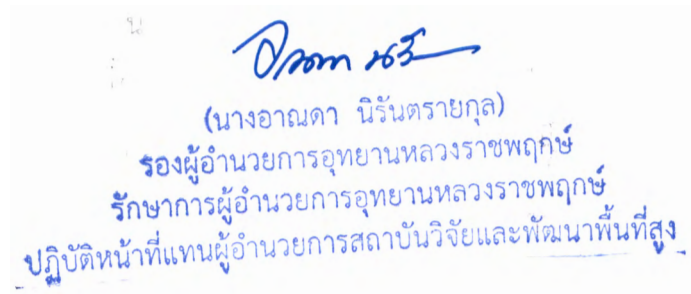 (นางอาณดา นิรันตรายกุล)
รองผู้อำนวยการอุทยานหลวงราชพฤกษ์
รักษาการผู้อำนวยการอุทยานหลวงราชพฤกษ์
ปฏิบัติหน้าที่แทนผู้อำนวยการสถาบันวิจัยและพัฒนาพื้นที่สูง